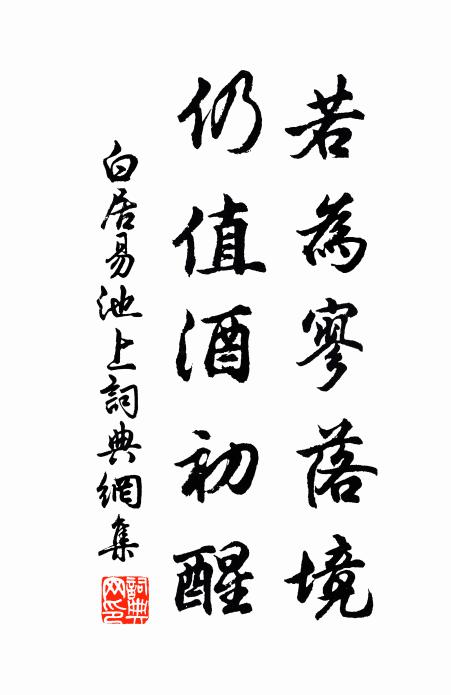 若為寥落境
仍值酒初醒
白居易池上詞典網集
詞典網印